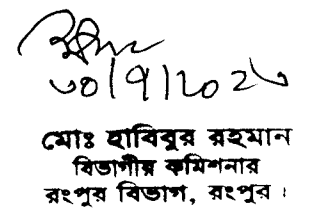 ৩০/৭/২০২৩
মোঃ হাবিবুর রহমান
বিভাগীয় কমিশনার
রংপুর বিভাগ, রংপুর।